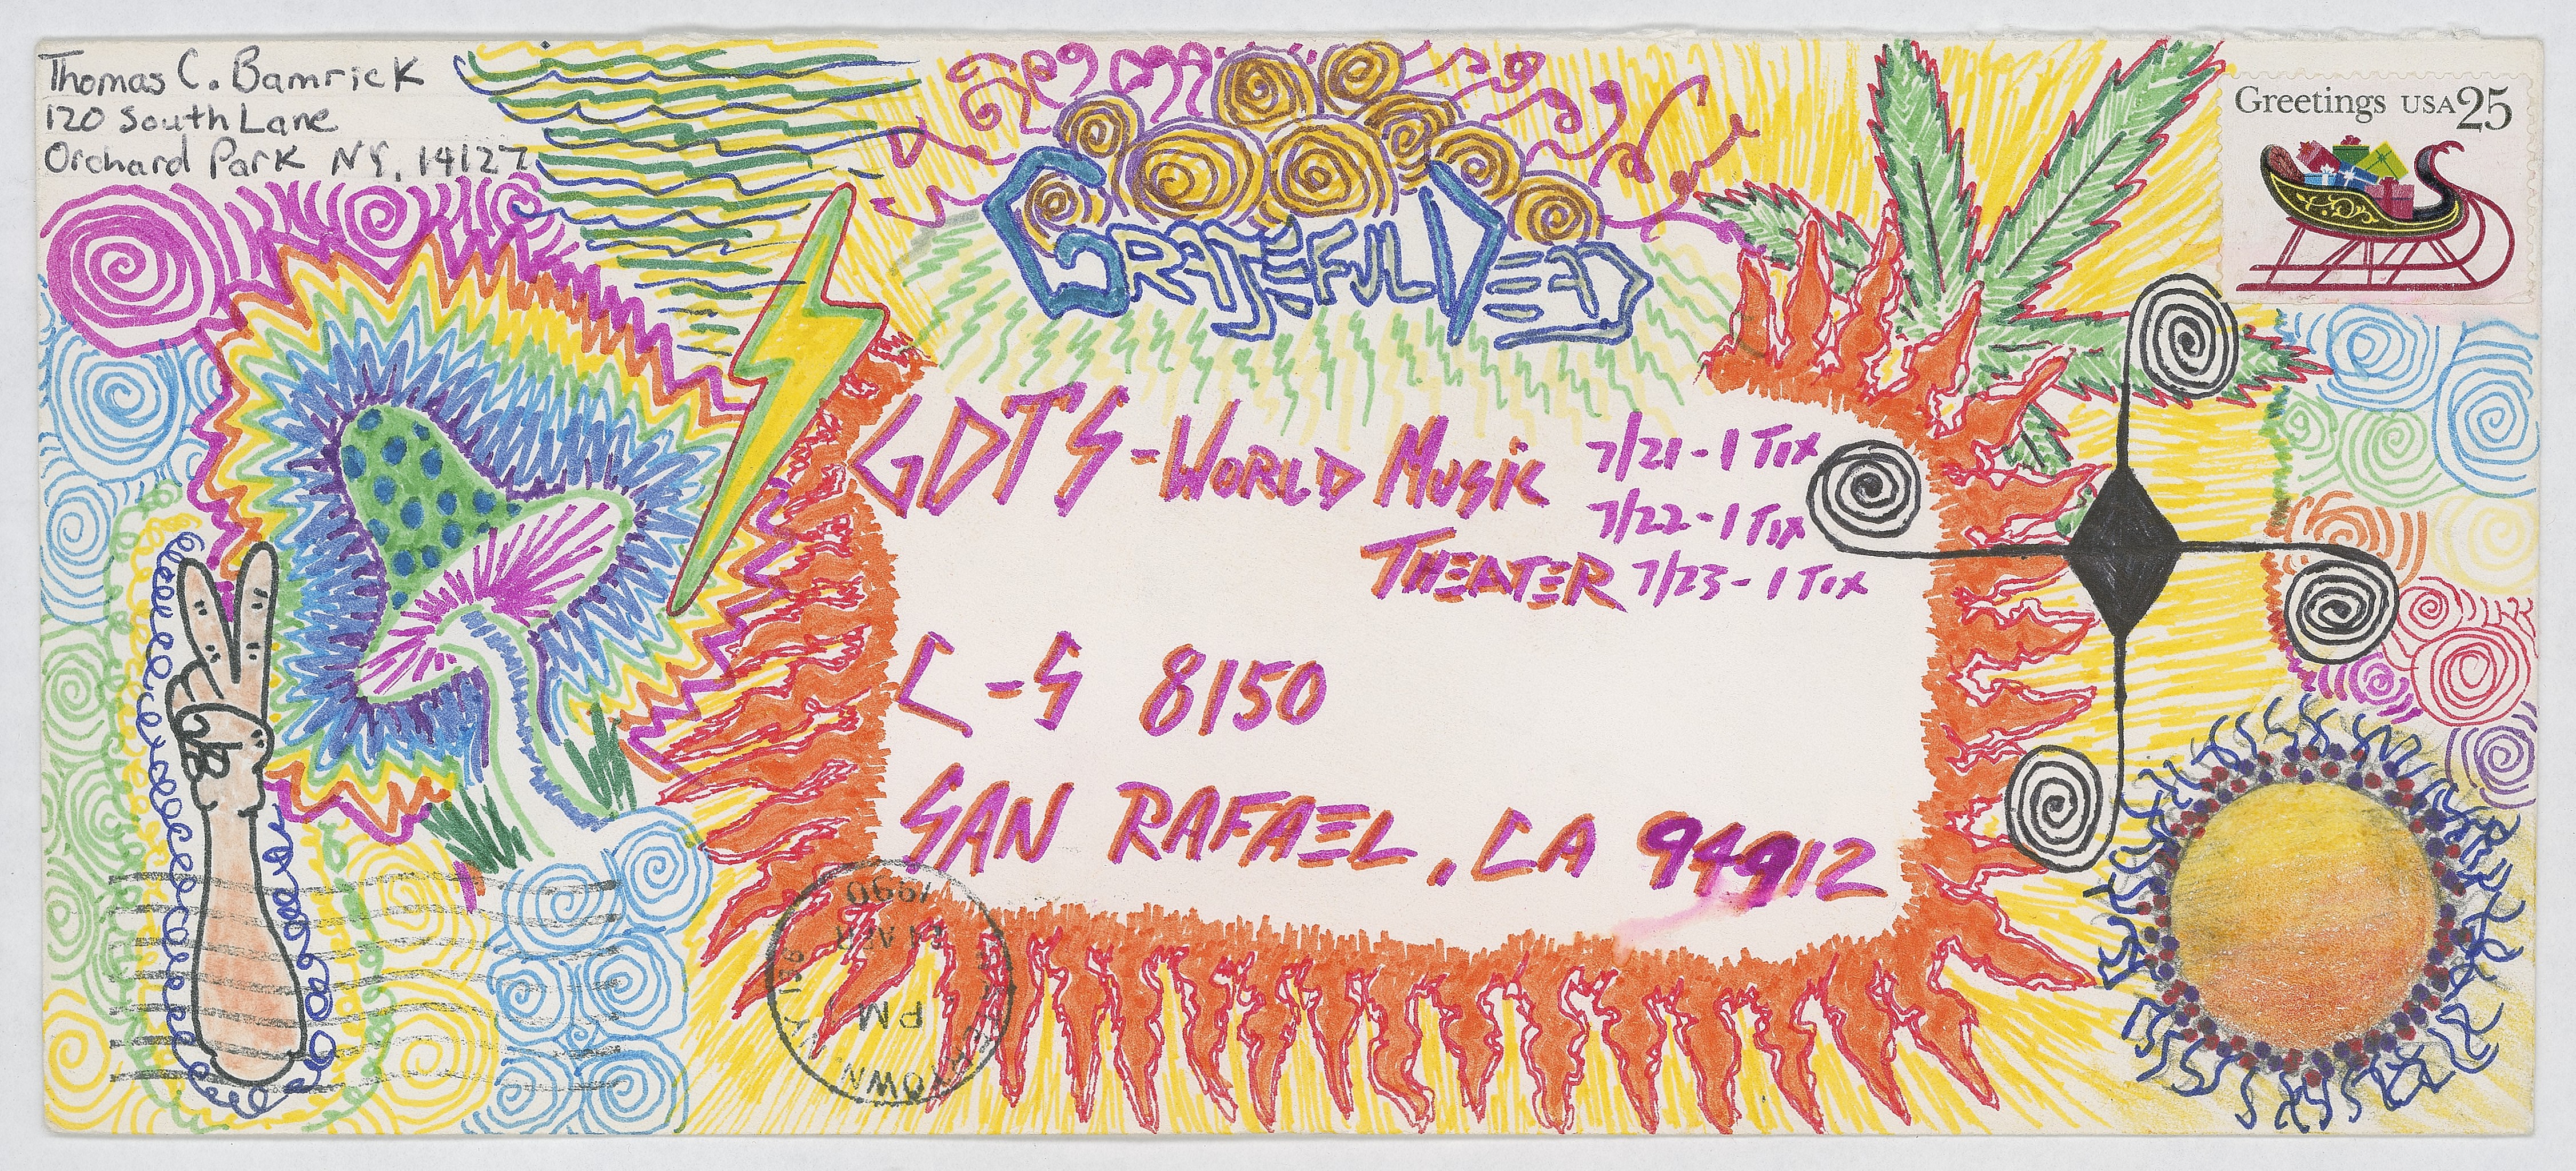 Thomas C. Bamrick
120 South Lane
Orchard Park NY, 14127
Greetings USA 25
GRATEFUL DEAD
GDTS - WORLD MUSIC THEATER
7/21 - 1 TIX
7/22 - 1 TIX
7/23 - 1 TIX
C-S 8150
SAN RAFAEL, CA 94912
1990
APR
PM